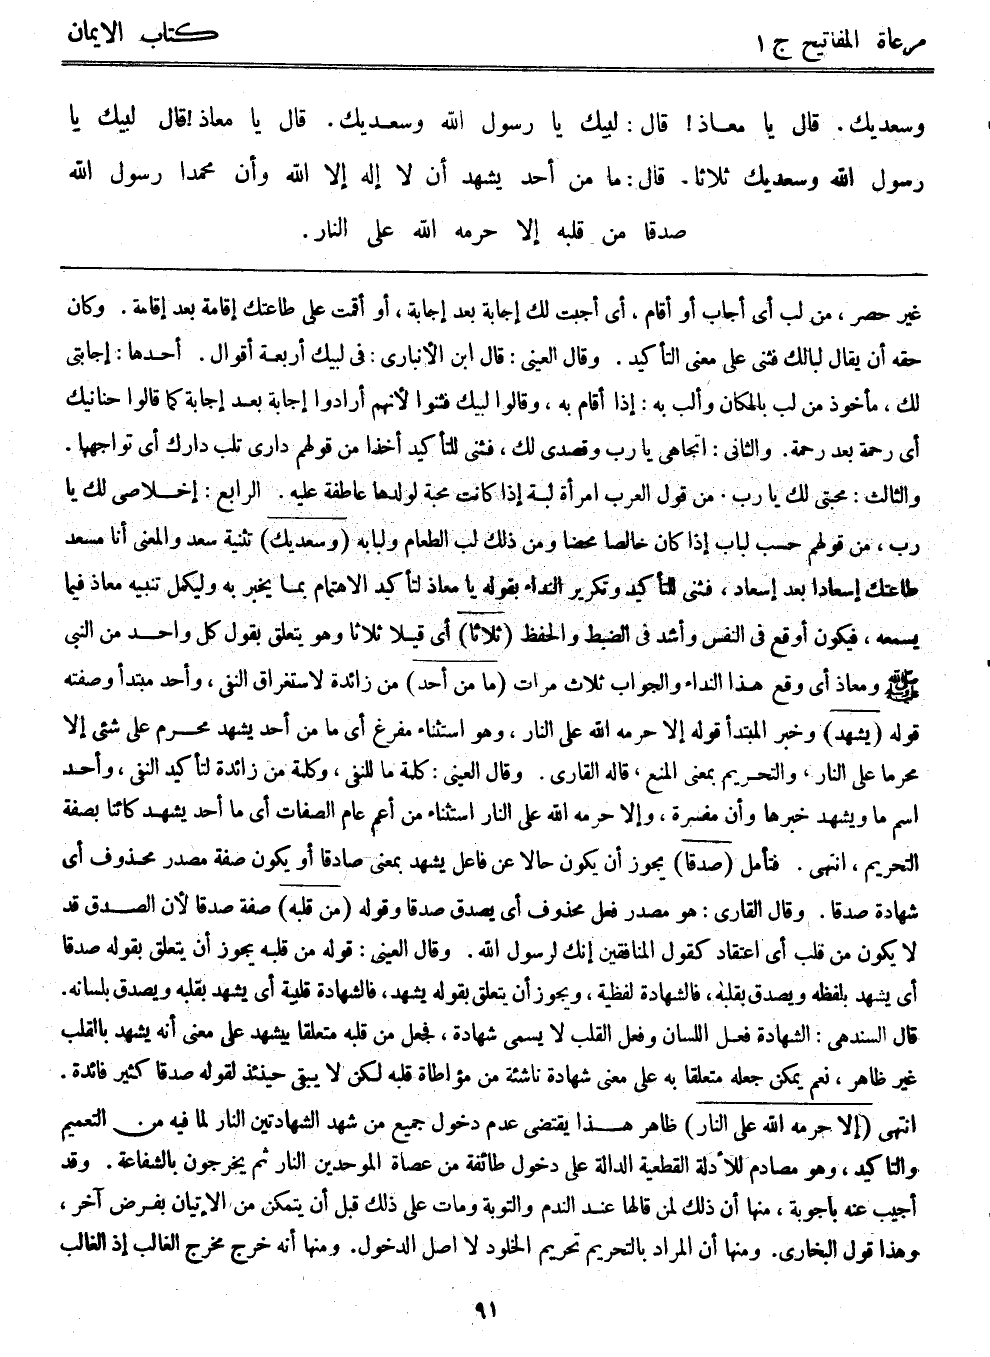 مرعاة المفاتيح ج ١
كتاب الايمان
وسعديك. قال يا معاذ! قال: لبيك يا رسول الله وسعديك. قال يا معاذ! قال لبيك يا
رسول الله وسعديك ثلاثا. قال: ما من أحد يشهد أن لا إله إلا الله وأن محمدا رسول الله
صدقا من قلبه إلا حرمه الله على النار.
غير حصر، من لب أى أجاب أو أقام، أى أجبت لك إجابة بعد إجابة، أو أقمت على طاعتك إقامة بعد إقامة. وكان
حقه أن يقال لبالك فثنى على معنى التأكيد. وقال العينى: قال ابن الأنبارى: فى لبيك أربعة أقوال. أحدها: إجابتى
لك، مأخوذ من لب بالمكان وألب به: إذا أقام به، وقالوا لبيك فثنوا لأنهم أرادوا إجابة بعد إجابة كما قالوا حنانيك
أى رحمة بعد رحمة. والثانى: اتجاهى يا رب وقصدى لك، فثنى للتأكيد أخذا من قولهم دارى تلب دارك أى تواجهها.
والثالث: محبتى لك يا رب. من قول العرب امرأة لبة إذا كانت محبة لولدها عاطفة عليه. الرابع: إخلاصى لك يا
رب، من قولهم حسب لباب إذا كان خالصا محضا ومن ذلك لب الطعام ولبابه (وسعديك) تثنية سعد والمعنى أنا مسعد
طاعتك إسعادا بعد إسعاد، فثنى للتأكيد وتكرير النداء بقوله يا معاذ لتأكيد الاهتمام بما يخبر به وليكمل تنبيه معاذ فيما
يسمعه، فيكون أوقع فى النفس وأشد فى الضبط والحفظ (ثلاثا) أى قيلا ثلاثا وهو يتعلق بقول كل واحد من النبى
ﷺ ومعاذ أى وقع هذا النداء والجواب ثلاث مرات (ما من أحد) من زائدة لاستغراق النفى، وأحد مبتدأ وصفته
قوله (يشهد) وخبر المبتدأ قوله إلا حرمه الله على النار، وهو استثناء مفرغ أى ما من أحد يشهد محرم على شئى إلا
محرما على النار، والتحريم بمعنى المنع، قاله القارى. وقال العينى: كلمة ما للنفى، وكلمة من زائدة لتأكيد النفى، وأحد
اسم ما ويشهد خبرها وأن مفسرة، وإلا حرمه الله على النار استثناء من أعم عام الصفات أى ما أحد يشهد كائنا بصفة
التحريم، انتهى. فتأمل (صدقا) يجوز أن يكون حالا عن فاعل يشهد بمعنى صادقا أو يكون صفة مصدر محذوف أى
شهادة صدقا. وقال القارى: هو مصدر فعل محذوف أى يصدق صدقا وقوله (من قلبه) صفة صدقا لأن الصدق قد
لا يكون من قلب أى اعتقاد كقول المنافقين إنك لرسول الله. وقال العينى: قوله من قلبه يجوز أن يتعلق بقوله صدقا
أى يشهد بلفظه ويصدق بقلبه، فالشهادة لفظية، ويجوز أن يتعلق بقوله يشهد، فالشهادة قلبية أى يشهد بقلبه ويصدق بلسانه.
قال السندهى: الشهادة فعل اللسان وفعل القلب لا يسمى شهادة، فجعل من قلبه متعلقا بيشهد على معنى أنه يشهد بالقلب
غير ظاهر، نعم يمكن جعله متعلقا به على معنى شهادة ناشئة من مؤاطاة قلبه لكن لا يبقى حينئذ لقوله صدقا كثير فائدة.
انتهى (إلا حرمه الله على النار) ظاهر هذا يقتضى عدم دخول جميع من شهد الشهادتين النار لما فيه من التعميم
والتاكيد، وهو مصادم للأدلة القطعية الدالة على دخول طائفة من عصاة الموحدين النار ثم يخرجون بالشفاعة. وقد
أجيب عنه بأجوبة، منها أن ذلك لمن قالها عند الندم والتوبة ومات على ذلك قبل أن يتمكن من الإتيان بفرض آخر،
وهذا قول البخارى. ومنها أن المراد بالتحريم تحريم الخلود لا اصل الدخول. ومنها أنه خرج مخرج الغالب إذ الغالب
٩١